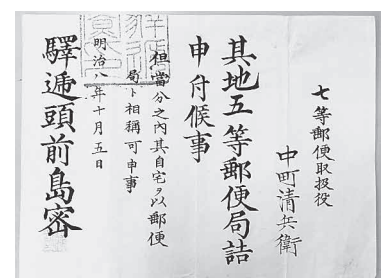 七等郵便取扱役
中町清兵衛
其地五等郵便局詰
申付候事
但當分之内其自宅ヲ以郵便
局ト相稱可申事
明治八年十月五日
驛遞頭前島密